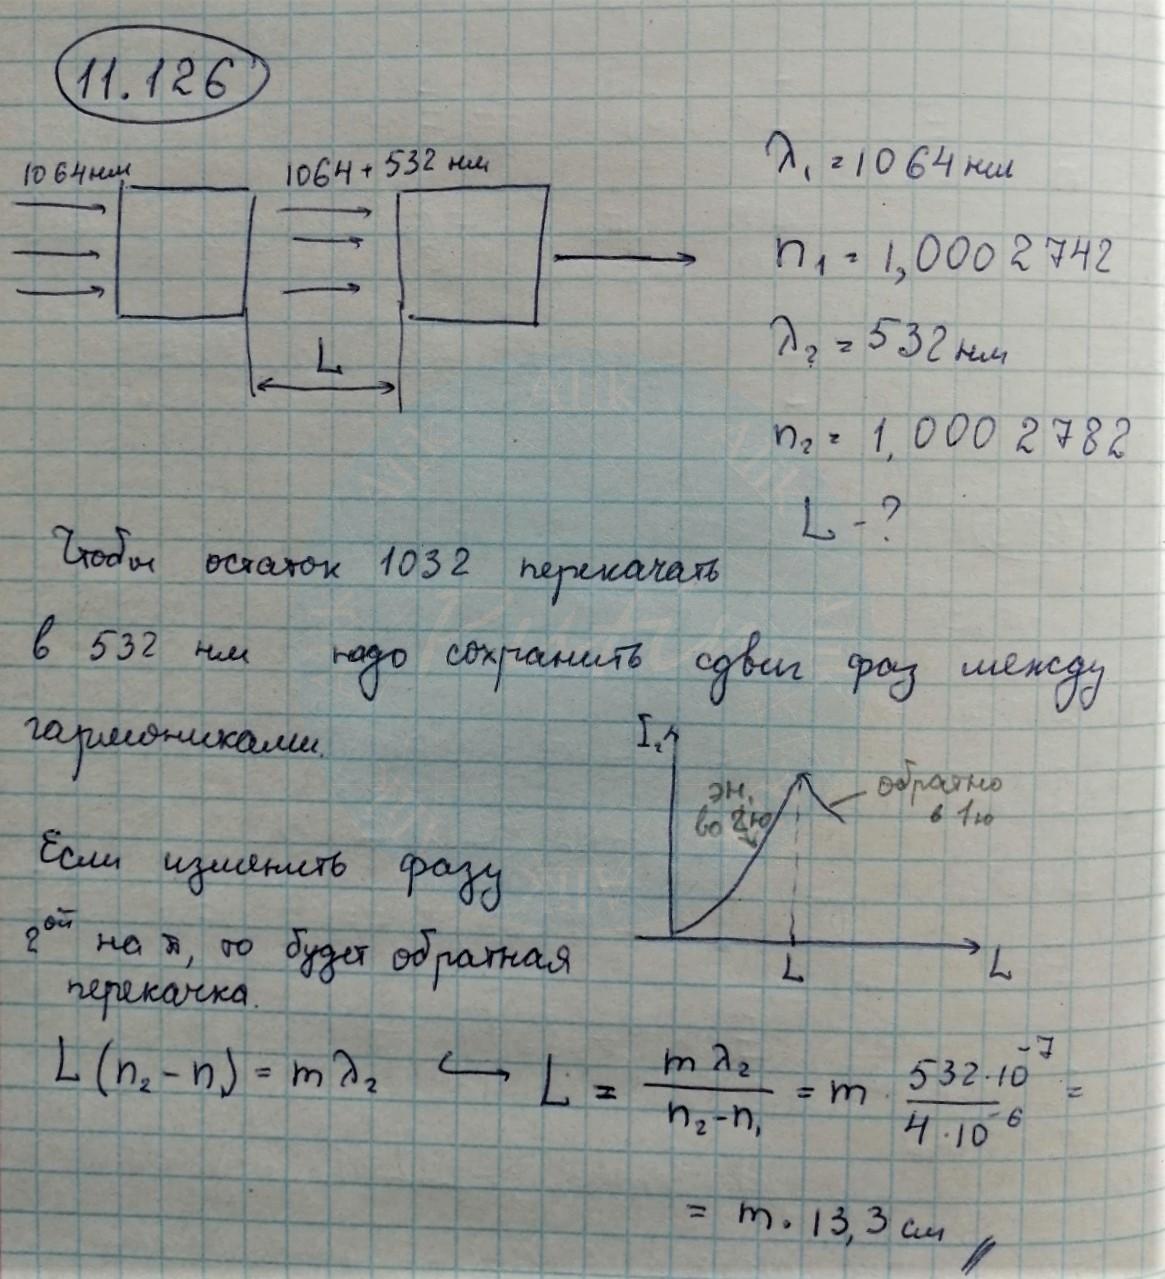 11.126
1064нм
1064 + 532 нм
L
λ₁ = 1064 нм
n₁ = 1,0002742
λ₂ = 532 нм
n₂ = 1,0002782
L - ?
Чтобы остаток 1032 перекачать
в 532 нм надо сохранить сдвиг фаз между
гармониками.
I₂
эн.
во 2ю
обратно
в 1ю
L
L
Если изменить фазу
2ой на π, то будет обратная
перекачка.
L(n₂ - n₁) = mλ₂ ↪ L = mλ₂ / (n₂ - n₁) = m · 532·10⁻⁷ / 4·10⁻⁶ =
= m · 13,3 см